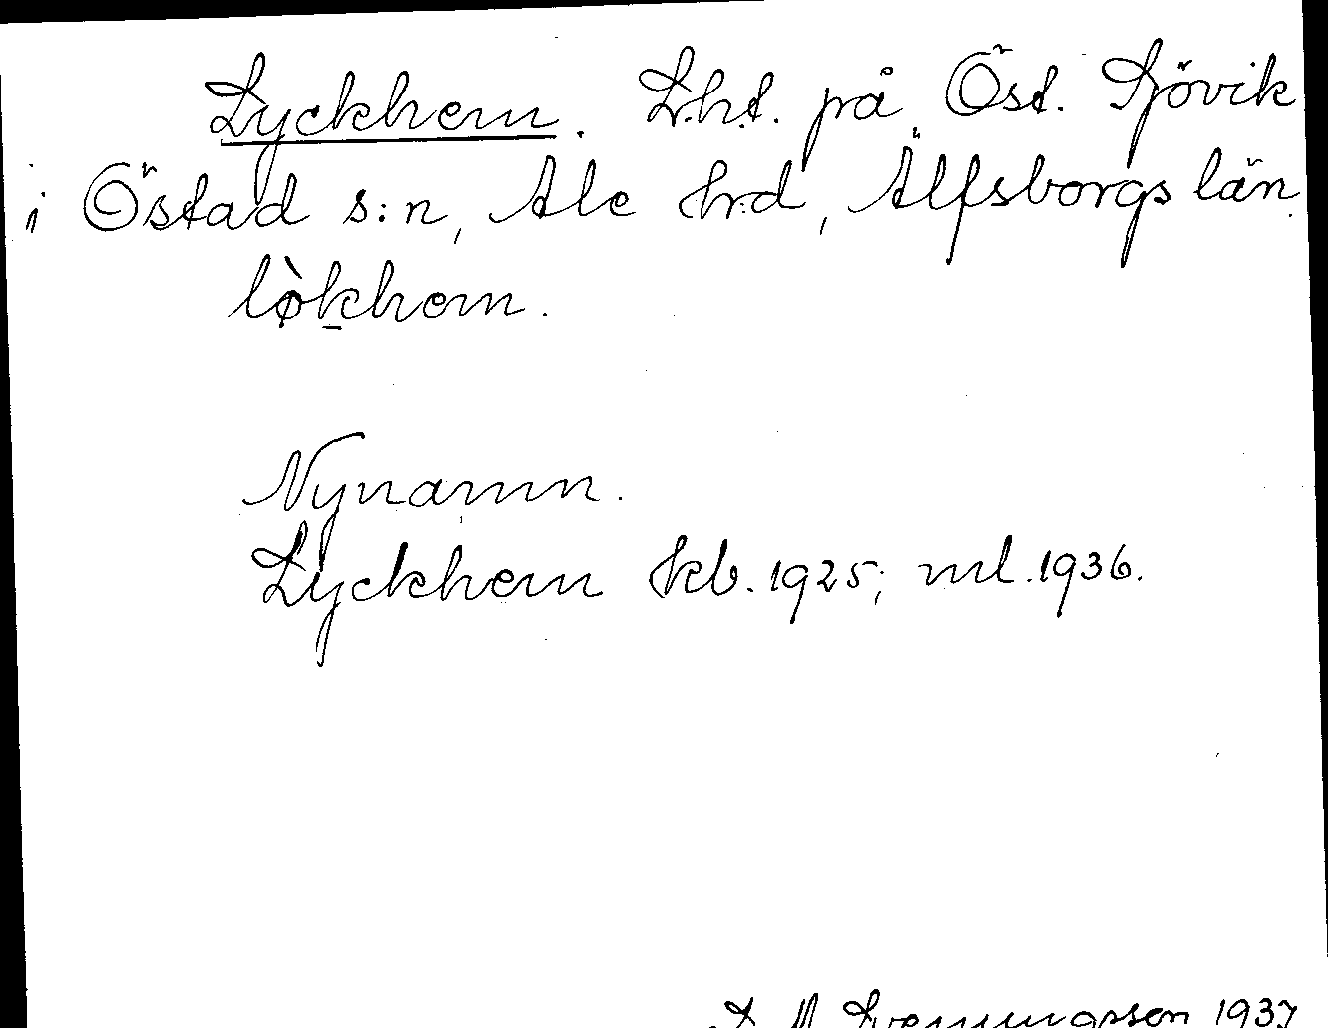 Lyckhem. L.h.t. på Öst. Sjövik
i Östad s:n, Ale hrd, Älfsborgs län.
lø̀khem.
Nynamn.
Lyckhem kb. 1925; ml. 1936.
Svenungsson 1937